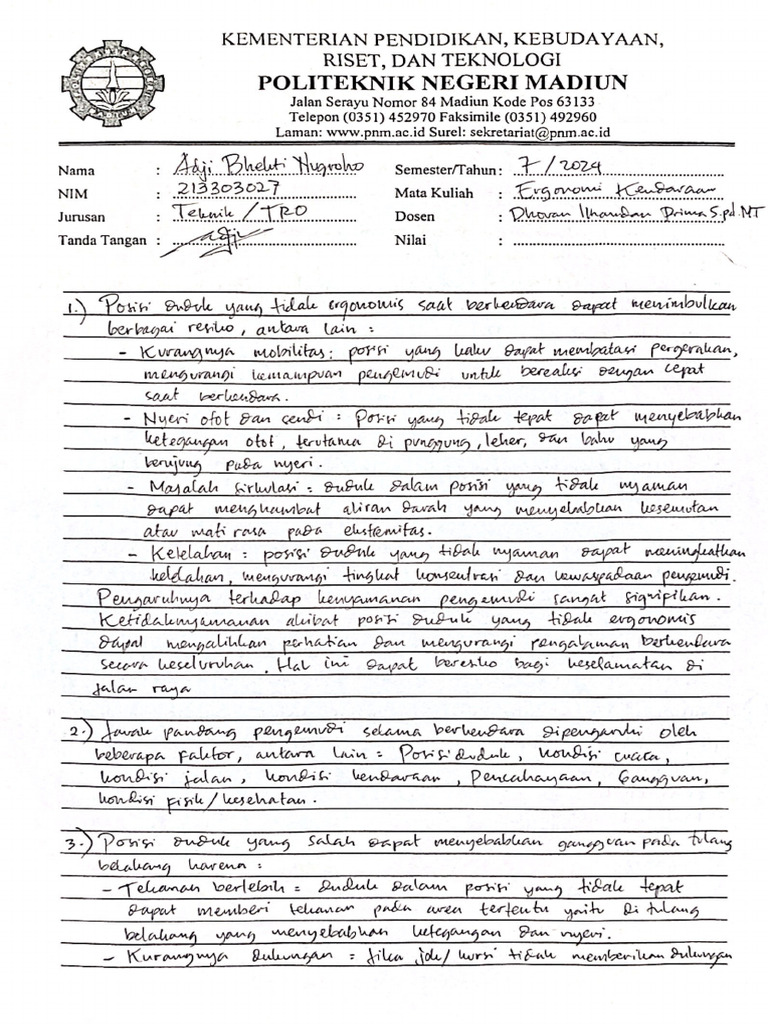 KEMENTERIAN PENDIDIKAN, KEBUDAYAAN,
RISET, DAN TEKNOLOGI
POLITEKNIK NEGERI MADIUN
Jalan Serayu Nomor 84 Madiun Kode Pos 63133
Telepon (0351) 452970 Faksimile (0351) 492960
Laman: www.pnm.ac.id Surel: sekretariat@pnm.ac.id
Nama : Adji Bhekti Nugroho Semester/Tahun : 7 / 2024
NIM : 213303027 Mata Kuliah : Ergonomi Kendaraan
Jurusan : Teknik / TRO Dosen : Dhovan Ilhamdan Prima S.pd.MT
Tanda Tangan : Adji Nilai :
1.) Posisi duduk yang tidak ergonomis saat berkendara dapat menimbulkan
berbagai resiko, antara lain :
- Kurangnya mobilitas : posisi yang kaku dapat membatasi pergerakan,
mengurangi kemampuan pengemudi untuk bereaksi dengan cepat
saat berkendara.
- Nyeri otot dan sendi : Posisi yang tidak tepat dapat menyebabkan
ketegangan otot, terutama di punggung, leher, dan bahu yang
berujung pada nyeri.
- Masalah sirkulasi : duduk dalam posisi yang tidak nyaman
dapat menghambat aliran darah yang menyebabkan kesemutan
atau mati rasa pada ekstremitas.
- Kelelahan : posisi duduk yang tidak nyaman dapat meningkatkan
kelelahan, mengurangi tingkat konsentrasi dan kewaspadaan pengemudi.
Pengaruhnya terhadap kenyamanan pengemudi sangat signifikan.
Ketidaknyamanan akibat posisi duduk yang tidak ergonomis
dapat mengalihkan perhatian dan mengurangi pengalaman berkendara
secara keseluruhan. Hal ini dapat beresiko bagi keselamatan di
jalan raya
2.) Jarak pandang pengemudi selama berkendara dipengaruhi oleh
beberapa faktor, antara lain : Posisi duduk, kondisi cuaca,
kondisi jalan, kondisi kendaraan, Pencahayaan, Gangguan,
kondisi fisik / kesehatan.
3.) Posisi duduk yang salah dapat menyebabkan gangguan pada tulang
belakang karena :
- Tekanan berlebih : duduk dalam posisi yang tidak tepat
dapat memberi tekanan pada area tertentu yaitu di tulang
belakang yang menyebabkan ketegangan dan nyeri.
- Kurangnya dukungan : Jika jok/ kursi tidak memberikan dukungan